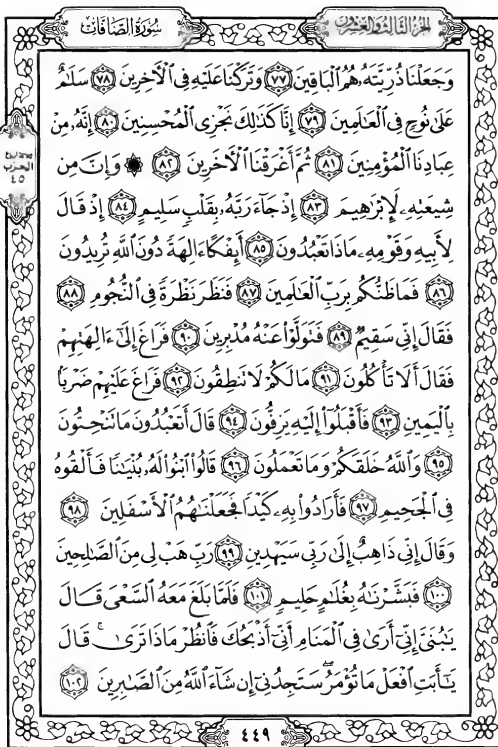 سُورَةُ الصَّافَّاتِ
الجزء الثالث والعشرون
وَجَعَلْنَا ذُرِّيَّتَهُۥ هُمُ ٱلْبَاقِينَ ٧٧ وَتَرَكْنَا عَلَيْهِ فِى ٱلْأَخِرِينَ ٧٨ سَلَٰمٌ
عَلَىٰ نُوحٍ فِى ٱلْعَٰلَمِينَ ٧٩ إِنَّا كَذَٰلِكَ نَجْزِى ٱلْمُحْسِنِينَ ٨٠ إِنَّهُۥ مِنْ
عِبَادِنَا ٱلْمُؤْمِنِينَ ٨١ ثُمَّ أَغْرَقْنَا ٱلْأَخَرِينَ ٨٢ ۞ وَإِنَّ مِن
شِيعَتِهِۦ لَإِبْرَٰهِيمَ ٨٣ إِذْ جَآءَ رَبَّهُۥ بِقَلْبٍ سَلِيمٍ ٨٤ إِذْ قَالَ
لِأَبِيهِ وَقَوْمِهِۦ مَاذَا تَعْبُدُونَ ٨٥ أَئِفْكًا ءَالِهَةً دُونَ ٱللَّهِ تُرِيدُونَ
٨٦ فَمَا ظَنُّكُم بِرَبِّ ٱلْعَٰلَمِينَ ٨٧ فَنَظَرَ نَظْرَةً فِى ٱلنُّجُومِ ٨٨
فَقَالَ إِنِّى سَقِيمٌ ٨٩ فَتَوَلَّوْا۟ عَنْهُ مُدْبِرِينَ ٩٠ فَرَاغَ إِلَىٰٓ ءَالِهَتِهِمْ
فَقَالَ أَلَا تَأْكُلُونَ ٩١ مَا لَكُمْ لَا تَنطِقُونَ ٩٢ فَرَاغَ عَلَيْهِمْ ضَرْبًۢا
بِٱلْيَمِينِ ٩٣ فَأَقْبَلُوٓا۟ إِلَيْهِ يَزِفُّونَ ٩٤ قَالَ أَتَعْبُدُونَ مَا تَنْحِتُونَ
٩٥ وَٱللَّهُ خَلَقَكُمْ وَمَا تَعْمَلُونَ ٩٦ قَالُوا۟ ٱبْنُوا۟ لَهُۥ بُنْيَٰنًا فَأَلْقُوهُ
فِى ٱلْجَحِيمِ ٩٧ فَأَرَادُوا۟ بِهِۦ كَيْدًا فَجَعَلْنَٰهُمُ ٱلْأَسْفَلِينَ ٩٨
وَقَالَ إِنِّى ذَاهِبٌ إِلَىٰ رَبِّى سَيَهْدِينِ ٩٩ رَبِّ هَبْ لِى مِنَ ٱلصَّٰلِحِينَ
١٠٠ فَبَشَّرْنَٰهُ بِغُلَٰمٍ حَلِيمٍ ١٠١ فَلَمَّا بَلَغَ مَعَهُ ٱلسَّعْىَ قَالَ
يَٰبُنَىَّ إِنِّىٓ أَرَىٰ فِى ٱلْمَنَامِ أَنِّىٓ أَذْبَحُكَ فَٱنظُرْ مَاذَا تَرَىٰ ۚ قَالَ
يَٰٓأَبَتِ ٱفْعَلْ مَا تُؤْمَرُ ۖ سَتَجِدُنِىٓ إِن شَآءَ ٱللَّهُ مِنَ ٱلصَّٰبِرِينَ ١٠٢
الحزب
٤٥
٤٤٩